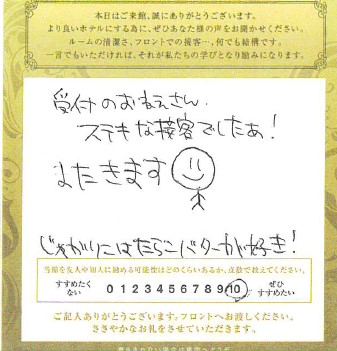 本日はご来館、誠にありがとうございます。
より良いホテルにする為に、ぜひあなた様の声をお聞かせください。
ルームの清潔さ、フロントでの接客…、何でも結構です。
一言でもいただければ、それが私たちの学びとなり励みになります。
受付のおねえさん、
ステキな接客でしたぁ!
またきます
じゃがりこはたらこバターが好き!
当館を友人や知人に勧める可能性はどのくらいあるか、点数で教えてください。
すすめたくない 0 1 2 3 4 5 6 7 8 9 10 ぜひすすめたい
ご記入ありがとうございます。フロントへお渡しください。
ささやかなお礼をさせていただきます。